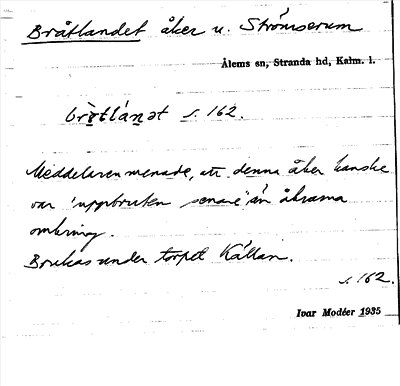 Bråtlandet åker u. Strömserum
Ålems sn, Stranda hd, Kalm. l.
bròtlánət s. 162.
Meddelaren menade, att denna åker kanske
var "uppbruten senare" än åkrarna
omkring.
Brukas under torpet Källan.
s. 162.
Ivar Modéer 1935